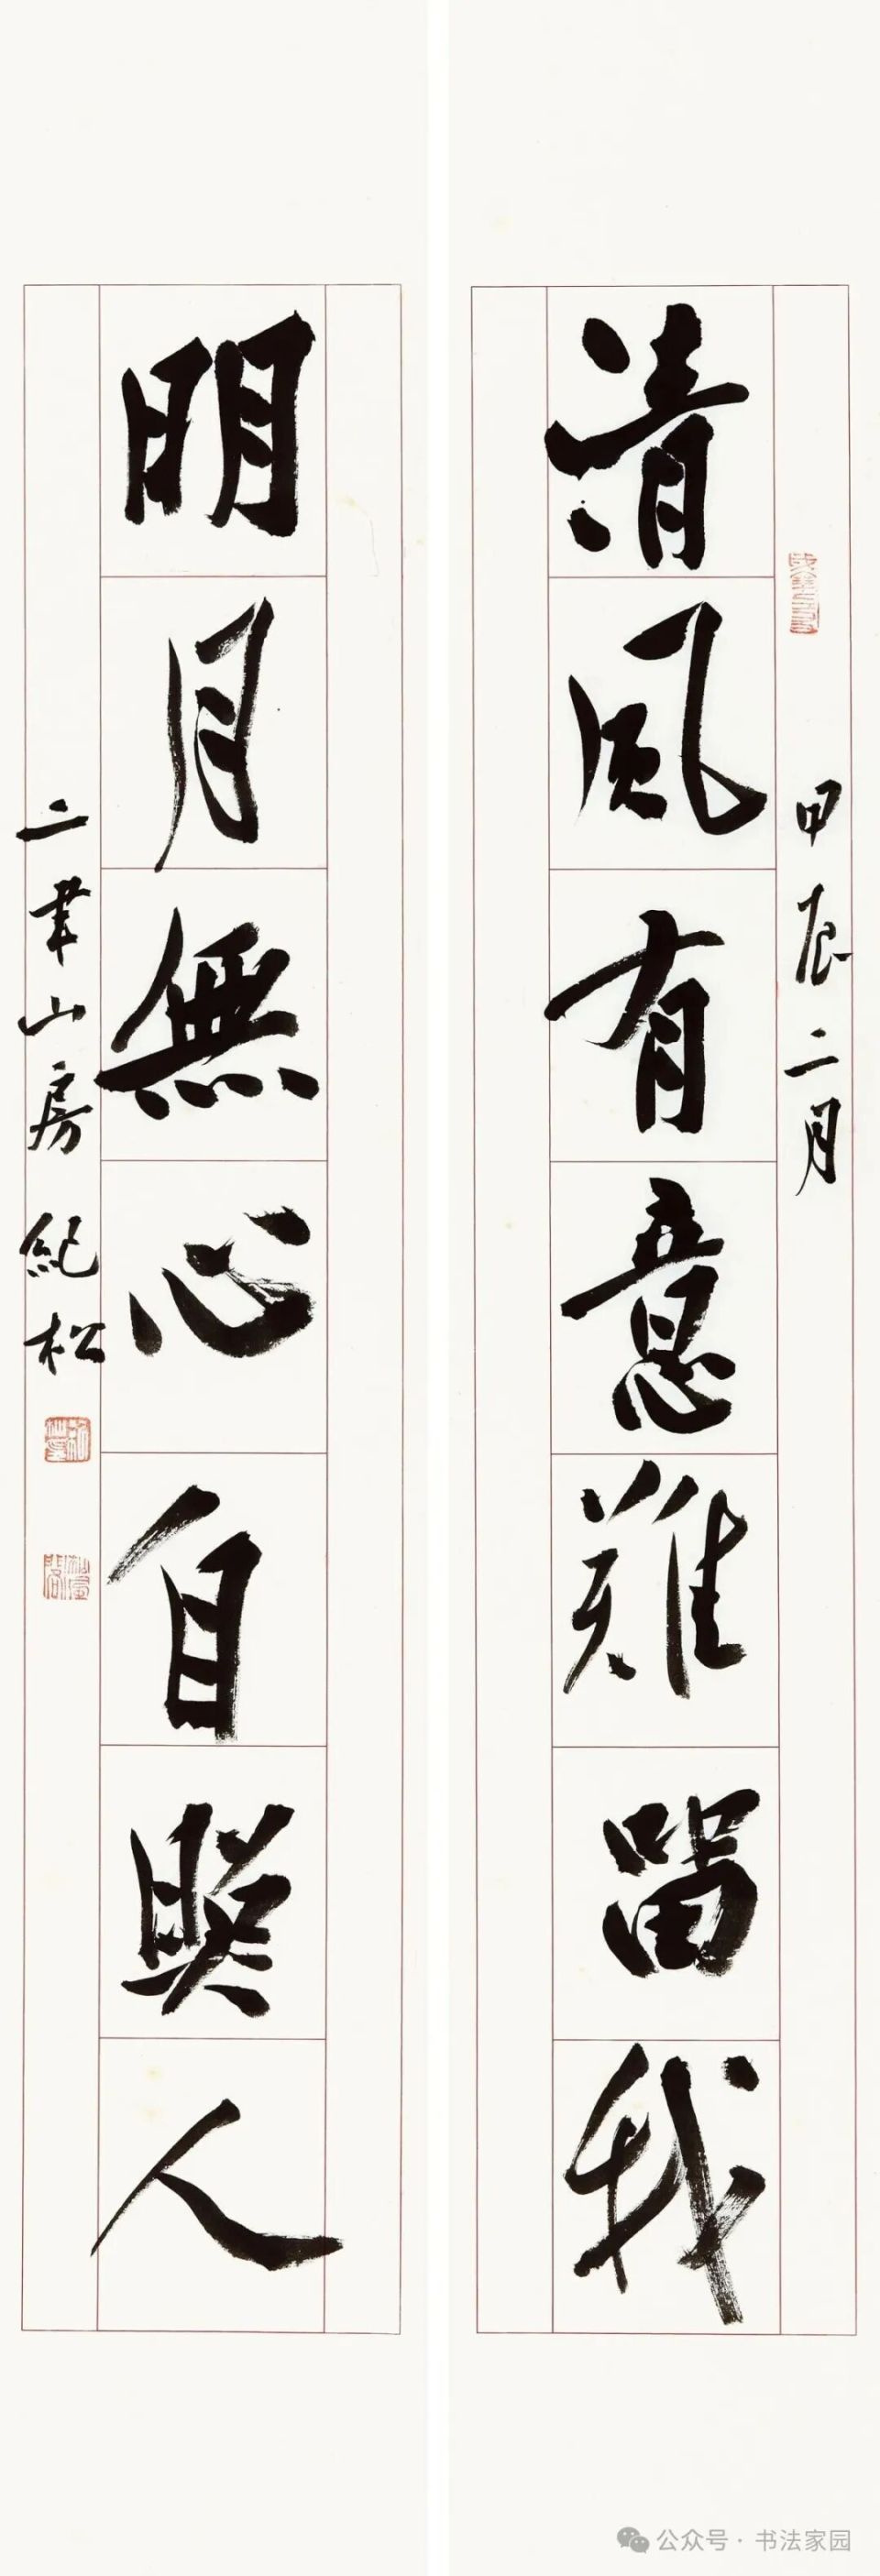 甲辰二月
清風有意難留我
明月無心自照人
二聿山房 紀松
公众号·书法家园